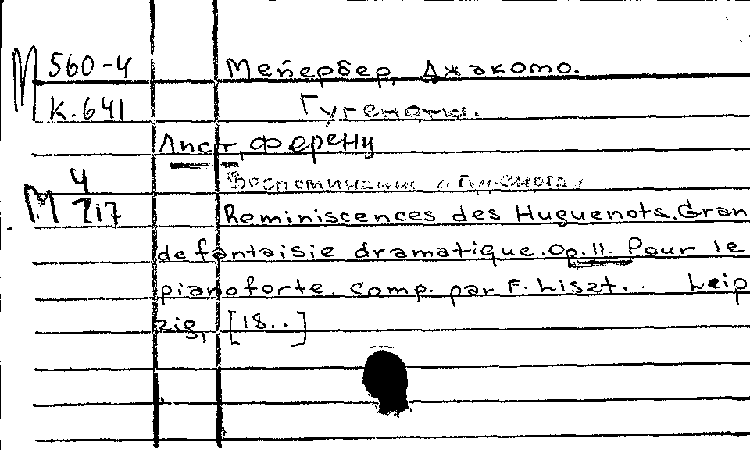 М 560-4 Мейербер, Джакомо.
К.641 Гугеноты.
Лист, Ференц
4 Воспоминание о "Гугенотах"
М 717 Reminiscences des Huguenots. Gran
de fantaisie dramatique. Op.11. Pour le
pianoforte. Comp. par F. Liszt. Leip
zig, [18..]